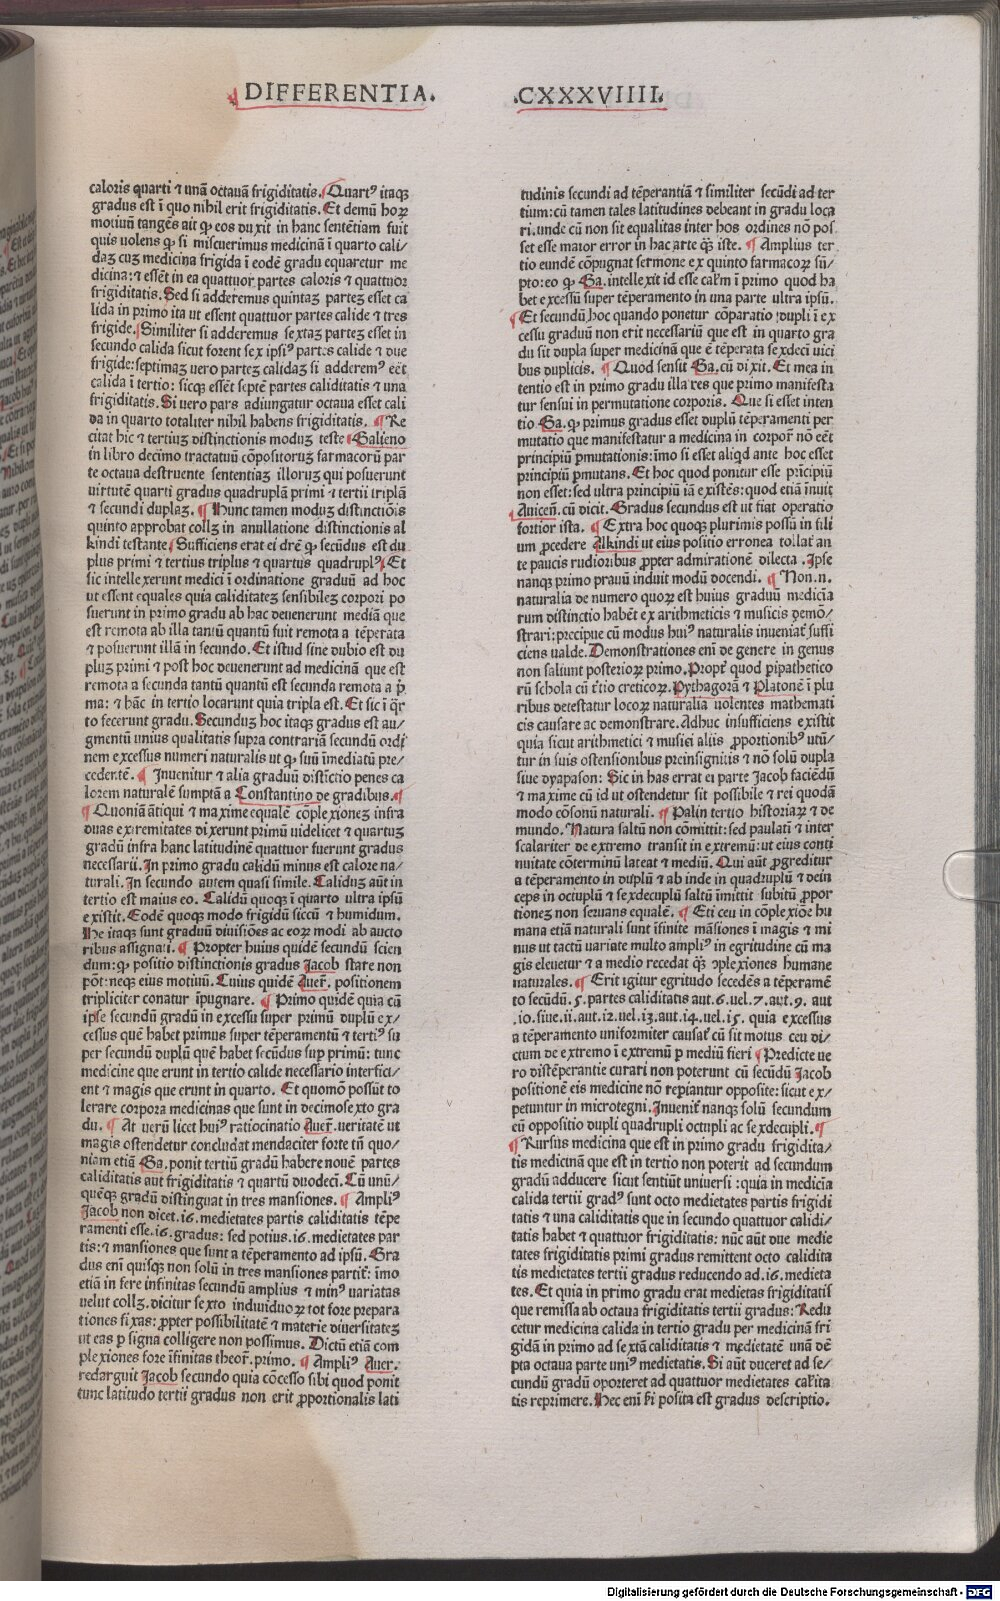 DIFFERENTIA. .CXXXVIIII.
caloris quarti ⁊ unã octauã frigiditatis. Quartꝰ itaqꝫ
gradus est ĩ quo nihil erit frigiditatis. Et demũ hoꝝ
motiuũ tangẽs ait ꝙ eos duxit in hanc sentẽtiam fuit
quis uolens ꝙ si miscuerimus medicinã ĩ quarto cali/
daꝫ cuꝫ medicina frigida ĩ eodẽ gradu equaretur me
dicina: ⁊ essẽt in ea quattuor partes caloris ⁊ quattuor
frigiditatis. Sed si adderemus quintaꝫ parteꝫ esset ca
lida in primo ita ut essent quattuor partes calide ⁊ tres
frigide. Similiter si adderemus sextaꝫ parteꝫ esset in
secundo calida sicut forent sex ipsiꝰ partes calide ⁊ due
frigide: septimaꝫ uero parteꝫ calidaꝫ si adderemꝰ eẽt
calida ĩ tertio: sicqꝫ essẽt septẽ partes caliditatis ⁊ una
frigiditatis. Si uero pars adiungatur octaua esset cali
da in quarto totaliter nihil habens frigiditatis. ¶ Re
citat hic ⁊ tertiuꝫ distinctionis moduꝫ teste Galieno
in libro decimo tractatuũ cõpositoruꝫ farmacorũ par
te octaua destruente sententiaꝫ illoruꝫ qui posuerunt
uirtutẽ quarti gradus quadruplã primi ⁊ tertii triplã
⁊ secundi duplaꝫ. ¶ Hunc tamen moduꝫ distinctiõis
quinto approbat collꝫ in anullatione distinctionis al
kindi testante. Sufficiens erat ei dr̃e ꝙ secũdus est du
plus primi ⁊ tertius triplus ⁊ quartus quadruplꝰ. Et
sic intellexerunt medici ĩ ordinatione graduũ ad hoc
ut essent equales quia caliditateꝫ sensibileꝫ corpori po
suerunt in primo gradu ab hac deuenerunt mediã que
est remota ab illa tantũ quantũ fuit remota a tẽperata
⁊ posuerunt illã in secundo. Et istud sine dubio est du
pluꝫ primi ⁊ post hoc deuenerunt ad medicinã que est
remota a secunda tantũ quantũ est secunda remota a p̃
ma: ⁊ hãc in tertio locarunt quia tripla est. Et sic ĩ q̃r
to fecerunt gradu. Secunduꝫ hoc itaqꝫ gradus est au/
gmentũ unius qualitatis supra contrariã secundũ ordi
nem excessus numeri naturalis ut ꝙ suũ ĩmediatũ pre/
cedentẽ. ¶ Inuenitur ⁊ alia graduũ distĩctio penes ca
lorem naturalẽ sumptã a Constantino de gradibus. ¶
¶ Quoniã ãtiqui ⁊ maxime equalẽ cõplexioneꝫ infra
duas extremitates dixerunt primũ uidelicet ⁊ quartuꝫ
gradũ infra hanc latitudinẽ quattuor fuerunt gradus
necessarii. In primo gradu calidũ minus est calore na/
turali. In secundo autem quasi simile. Calidus aũt in
tertio est maius eo. Calidũ quoqꝫ ĩ quarto ultra ipsũ
existit. Eodẽ quoqꝫ modo frigidũ siccũ ⁊ humidum.
He itaqꝫ sunt graduũ diuisiões ac eoꝝ modi ab aucto
ribus assignati. ¶ Propter huius quidẽ secundũ scien
dum: ꝙ positio distinctionis gradus Jacob stare non
põt: neqꝫ eius motiuũ. Cuius quidẽ Auer̃. positionem
tripliciter conatur ĩpugnare. ¶ Primo quidẽ quia cũ
ipse secundũ gradũ in excessu super primũ duplũ ex/
cessus quẽ habet primus super tẽperamentũ ⁊ tertiꝰ su
per secundũ duplũ quẽ habet secũdus suꝑ primũ: tunc
medicine que erunt in tertio calide necessario interfici/
ent ⁊ magis que erunt in quarto. Et quomõ possũt to
lerare corpora medicinas que sunt in decimosexto gra
du. ¶ At uerũ licet huiꝰ ratiocinatio Auer̃. ueritatẽ ut
magis ostendetur concludat mendaciter forte tñ quo/
niam etiã Ga. ponit tertiũ gradũ habere nouẽ partes
caliditatis aut frigiditatis ⁊ quartũ duodecĩ. Cũ unũ/
quẽqꝫ gradũ distinguat in tres mansiones. ¶ Ampliꝰ
Jacob non dicet .i6. medietates partis caliditatis tẽpe
ramenti esse .i6. gradus: sed potius .i6. medietates par
tis: ⁊ mansiones que sunt a tẽperamento ad ipsũ. Gra
dus eni quisqꝫ non solũ in tres mansiones partit̃: ĩmo
etiã in fere infinitas secundũ amplius ⁊ minꝰ uariatas
uelut collꝫ. dicitur sexto indiuiduoꝝ tot fore prepara
tiones fixas: ꝓpter possibilitatẽ ⁊ materie diuersitateꝫ
ut eas ꝑ signa colligere non possimus. Dictũ etiã com
plexiones fore ĩfinitas theor̃. primo. ¶ Ampliꝰ Auer.
redarguit Jacob secundo quia cõcesso sibi quod ponit
tunc latitudo tertii gradus non erit ꝓportionalis lati
tudinis secundi ad tẽperantiã ⁊ similiter secũdi ad ter
tium: cũ tamen tales latitudines debeant in gradu loca
ri. unde cũ non sit equalitas inter hos ordines nõ pos
set esse maior error in hac arte q̃ꝫ iste. ¶ Amplius ter
tio eundẽ cõpugnat sermone ex quinto farmacoꝝ sũ/
pto: eo ꝙ Ga. intellexit id esse calꝫm ĩ primo quod ha
bet excessũ super tẽperamento in una parte ultra ipsũ.
¶ Et secundũ hoc quando ponetur cõparatio dupli ĩ ex
cessu graduũ non erit necessariũ que est in quarto gra
du sit dupla super medicinã que ẽ tẽperata sexdeci uici
bus duplicis. ¶ Quod sensit Ga. cũ dixit. Et mea in
tentio est in primo gradu illa res que primo manifesta
tur sensui in permutatione corporis. Que si esset inten
tio Ga. ꝙ primus gradus esset duplũ tẽperamenti per
mutatio que manifestatur a medicina in corpor̃ nõ eẽt
principiũ ꝑmutationis: ĩmo si esset aliqd ante hoc esset
principiũ ꝑmutans. Et hoc quod ponitur esse prĩcipiũ
non esset: sed ultra principiũ iã existẽs: quod etiã ĩnuit
Auiceñ. cũ dicit. Gradus secundus est ut fiat operatio
fortior ista. ¶ Extra hoc quoqꝫ plurimis possũ in fili
um ꝓcedere Alkindi ut eius positio erronea tollat̃ an
te paucis rudioribus ꝓpter admirationẽ dilecta. Ipse
nanqꝫ primo prauũ induit modũ docendi. ¶ Non.n.
naturalia de numero quoꝝ est huius graduũ medicia
rum distinctio habẽt ex arithmeticis ⁊ musicis demõ/
strari: precipue cũ modus huiꝰ naturalis inueniat̃ suffi
ciens ualde. Demonstrationes eni de genere in genus
non saliunt posterioꝝ primo. Propt̃ quod ꝑipathetico
rũ schola cũ t̃tio creticoꝝ. Pythagorã ⁊ Platonẽ ĩ plu
ribus detestatur locoꝝ naturalia uolentes mathemati
cis causare ac demonstrare. Adhuc insufficiens existit
quia sicut arithmetici ⁊ musici aliis ꝓportionibꝰ utũ/
tur in suis ostensionibus preinsignitis ⁊ nõ solũ dupla
siue dyapason: Sic in has errat ei parte Jacob faciẽdũ
⁊ maxime cũ id ut ostendetur sit possibile ⁊ rei quodã
modo cõsonũ naturali. ¶ Palin tertio historiaꝝ ⁊ de
mundo. Natura saltũ non cõmittit: sed paulatĩ ⁊ inter
scalariter de extremo transit in extremũ: ut eius conti
nuitate cõterminũ lateat ⁊ mediũ. Qui aũt ꝓgreditur
a tẽperamento in duplũ ⁊ ab inde in quadruplũ ⁊ dein
ceps in octuplũ ⁊ sexdecuplũ saltũ ĩmittit subitũ ꝓpor
tioneꝫ non seruans equalẽ. ¶ Eti ceu in cõplexiõe hu
mana etiã naturali sunt ĩfinite mãsiones ĩ magis ⁊ mi
nus ut tactũ uariate multo ampliꝰ in egritudine cũ ma
gis eleuetur ⁊ a medio recedat q̃ꝫ ꝯplexiones humane
naturales. ¶ Erit igitur egritudo secedẽs a tẽperamẽ
to secũdũ .5. partes caliditatis aut.6.uel.7.aut.9. aut
.io.siue.ii.aut.i2.uel.i3.aut.i4.uel.i5. quia excessus
a tẽperamento uniformiter causat̃ cũ sit motus ceu di/
ctum de extremo ĩ extremũ ꝑ mediũ fieri ¶ Predicte ue
ro distẽperantie curari non poterunt cũ secũdũ Jacob
positionẽ eis medicine nõ repiantur opposite: sicut ex/
petuntur in microtegni. Inuenit̃ nanqꝫ solũ secundum
eũ oppositio dupli quadrupli octupli ac sexdecupli. ¶
¶ Rursus medicina que est in primo gradu frigidita/
tis medicinã que est in tertio non poterit ad secundum
gradũ adducere sicut sentiũt uniuersi: quia in medicia
calida tertii gradꝰ sunt octo medietates partis frigidi
tatis ⁊ una caliditatis que in secundo quattuor calidi/
tatis habet ⁊ quattuor frigiditatis: nũc aũt due medie
tates frigiditatis primi gradus remittent octo calidita
tis medietates tertii gradus reducendo ad.i6.medieta
tes. Et quia in primo gradu erat medietas frigiditatis
que remissa ab octaua frigiditatis tertii gradus: Redu
cetur medicina calida in tertio gradu per medicinã fri
gidã in primo ad sextã caliditatis ⁊ medietatẽ unã dẽ
pta octaua parte uniꝰ medietatis. Si aũt duceret ad se/
cundũ gradũ oporteret ad quattuor medietates calꝫita
tis reprimere. Hec eni ki posita est gradus descriptio.
Digitalisierung gefördert durch die Deutsche Forschungsgemeinschaft - DFG